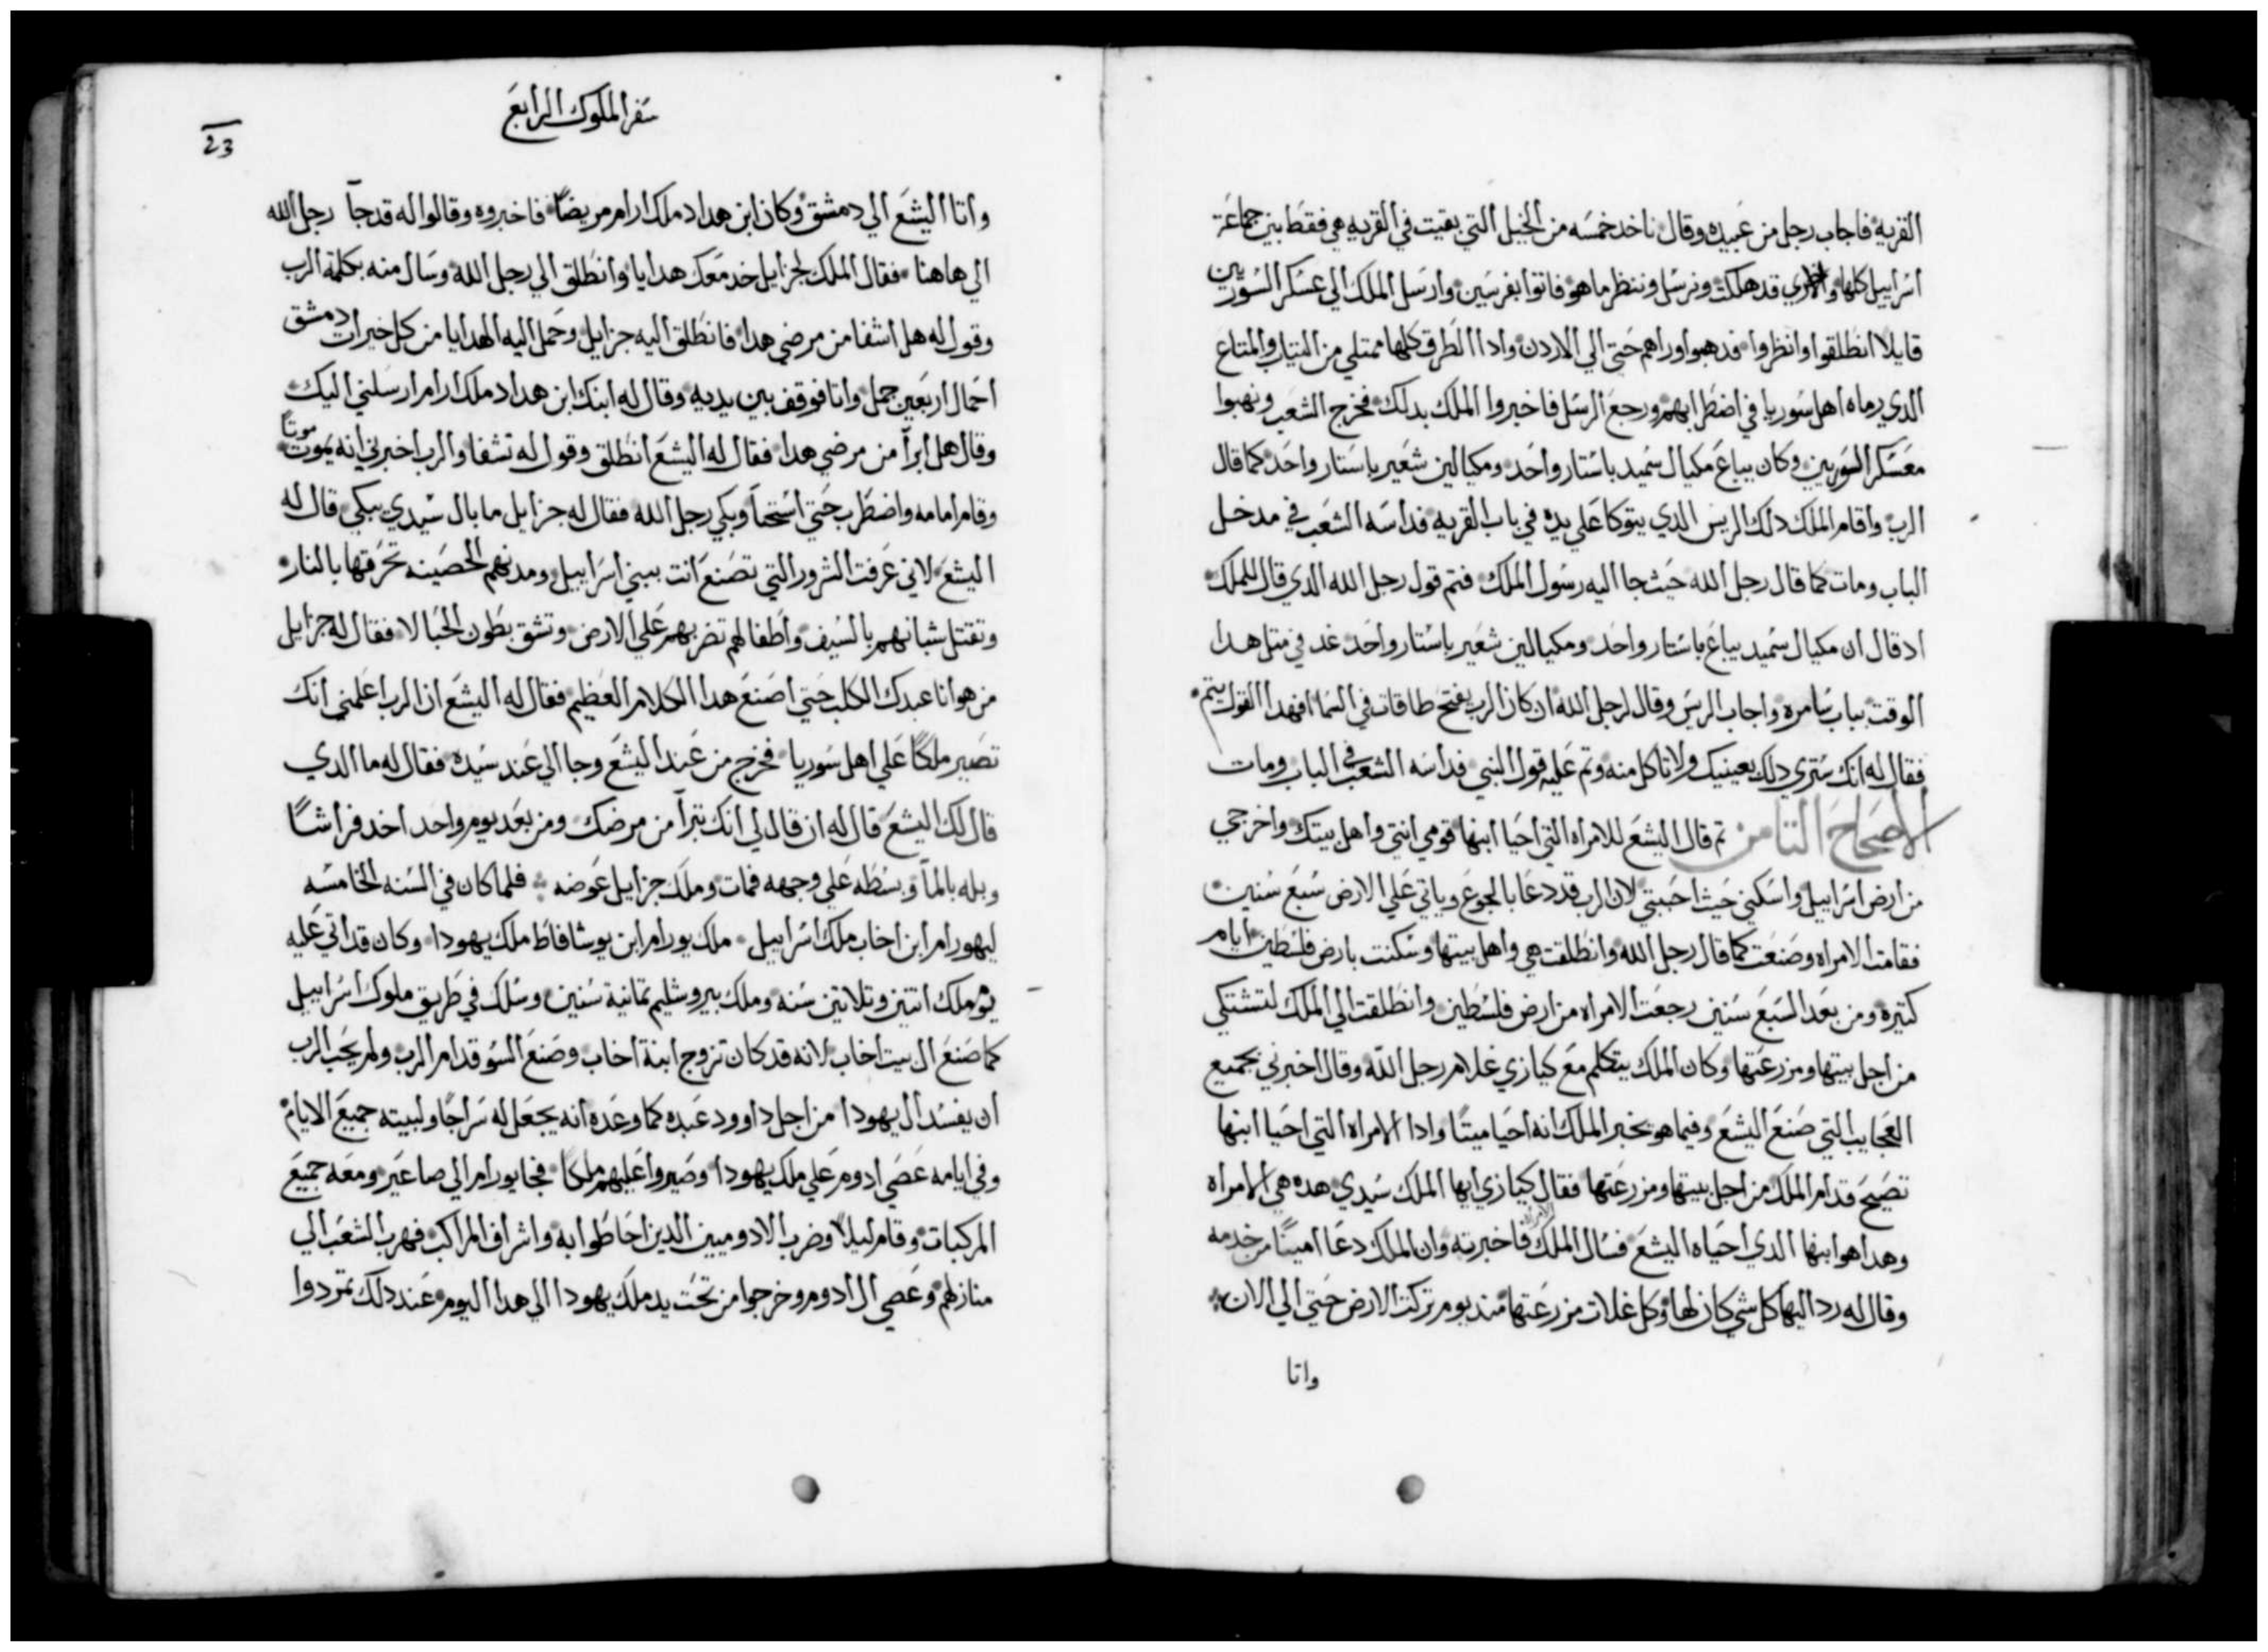 القريه فاجاب رجل من عبيده وقال ناخد خمسه من الخيل التي بقيت في القريه هي فقط بين جماعة
اسراييل كلها والاخري قد هلكت ونرسل وننظر ما هو فاتوا بفرسين وارسل الملك الي عسكر السوريين
قايلا انطلقوا وانظروا فدهبوا وراهم حتي الي الاردن وادا الطرق كلها ممتلي من التياب والمتاع
الدي رماه اهل سوريا في اضطرابهم ورجع الرسل فاخبروا الملك بدلك فخرج الشعب ونهبوا
معسكر السوريين وكان يباع مكيال سميد باستار واحد ومكيالين شعير باستار واحد كما قال
الرب واقام الملك دلك الريس الدي يتوكا علي يده في باب القريه فداسه الشعب في مدخل
الباب ومات كما قال رجل الله حيث جا اليه رسول الملك فتم قول رجل الله الدي قال للملك
اد قال ان مكيال سميد يباع باستار واحد ومكيالين شعير باستار واحد غد في متل هدا
الوقت بباب سامره واجاب الريس وقال لرجل الله ان كان الرب يفتح طاقات في السما افهدا القول يتم
فقال له انك سترى دلك بعينيك ولا تاكل منه وتم عليه قول النبي فداسه الشعب في الباب ومات
الاصحاح التامن تم قال اليشع للامراه التي احيا ابنها قومي انتي واهل بيتك واخرجي
من ارض اسراييل واسكني حيث احببتي لان الرب قد دعا بالجوع وياتي علي الارض سبع سنين
فقامت الامراه وصنعت كما قال رجل الله وانطلقت هي واهل بيتها وسكنت بارض فلسطين ايام
كتيره ومن بعد السبع سنين رجعت الامراه من ارض فلسطين وانطلقت الي الملك لتشتكي
من اجل بيتها ومزرعتها وكان الملك يتكلم مع كيازي غلام رجل الله وقال اخبرني بجميع
العجايب التي صنع اليشع وفيما هو يخبر الملك انه احيا ميتا وادا الامراه التي احيا ابنها
تصيح قدام الملك من اجل بيتها ومزرعتها فقال كيازي ايها الملك سيدي هده هي الامراه
وهدا هو ابنها الدي احياه اليشع فسال الملك الامراه فاخبرته وان الملك دعا امينا من خدمه
وقال له رد اليها كل شي كان لها وكل غلات مزرعتها مند يوم تركت الارض حتي الي الان
واتا
سفر الملوك الرابع
23
واتا اليشع الي دمشق وكان ابن هداد ملك ارام مريضا فاخبروه وقالوا له قد جا رجل الله
الي هاهنا فقال الملك لجزايل خد معك هدايا وانطلق الي رجل الله وسال منه بكلمة الرب
وقول له هل اشفا من مرضي هدا فانطلق اليه جزايل وحمل اليه الهدايا من كل خيرات دمشق
احمال اربعين جمل واتا فوقف بين يديه وقال له ابنك ابن هداد ملك ارام ارسلني اليك
وقال هل ابرا من مرضي هدا فقال له اليشع انطلق وقول له تشفا والرب اخبرني انه يموت موتا
وقام امامه واضطرب حتي استحا وبكي رجل الله فقال له جزايل ما بال سيدي يبكي قال له
اليشع لاني عرفت الشرور التي تصنع انت ببني اسراييل ومدنهم الحصينه تحرقها بالنار
وتقتل شبانهم بالسيف واطفالهم تضربهم علي الارض وتشق بطون الحبالا فقال له جزايل
من هو انا عبدك الكلب حتي اصنع هدا الكلام العظيم فقال له اليشع ان الرب اعلمني انك
تصير ملكا علي اهل سوريا فخرج من عند اليشع وجا الي عند سيده فقال له ما الدي
قال لك اليشع قال له ان قال لي انك تبرا من مرضك ومن بعد يوم واحد اخد فراشا
وبله بالما وبسطه علي وجهه فمات وملك جزايل عوضه فلما كان في السنه الخامسه
ليهورام ابن اخاب ملك اسراييل ملك يورام ابن يوشافاط ملك يهودا وكان قد اتي عليه
يوم ملك اتنين وتلاتين سنه وملك بيروشليم تمانية سنين وسلك في طريق ملوك اسراييل
كما صنع ال بيت اخاب لانه قد كان تزوج ابنة اخاب وصنع السو قدام الرب ولم يحب الرب
ان يفسد ال يهودا من اجل داوود عبده كما وعده انه يجعل له سراجا ولبيته جميع الايام
وفي ايامه عصي ادوم علي ملك يهودا وصيروا عليهم ملكا فجا يورام الي صاعير ومعه جميع
المركبات وقام ليلا وضرب الادوميين الدين احاطوا به واشراف المراكب فهرب الشعب الي
منازلهم وعصي ال ادوم وخرجوا من تحت يد ملك يهودا الي هدا اليوم عند دلك تمردوا